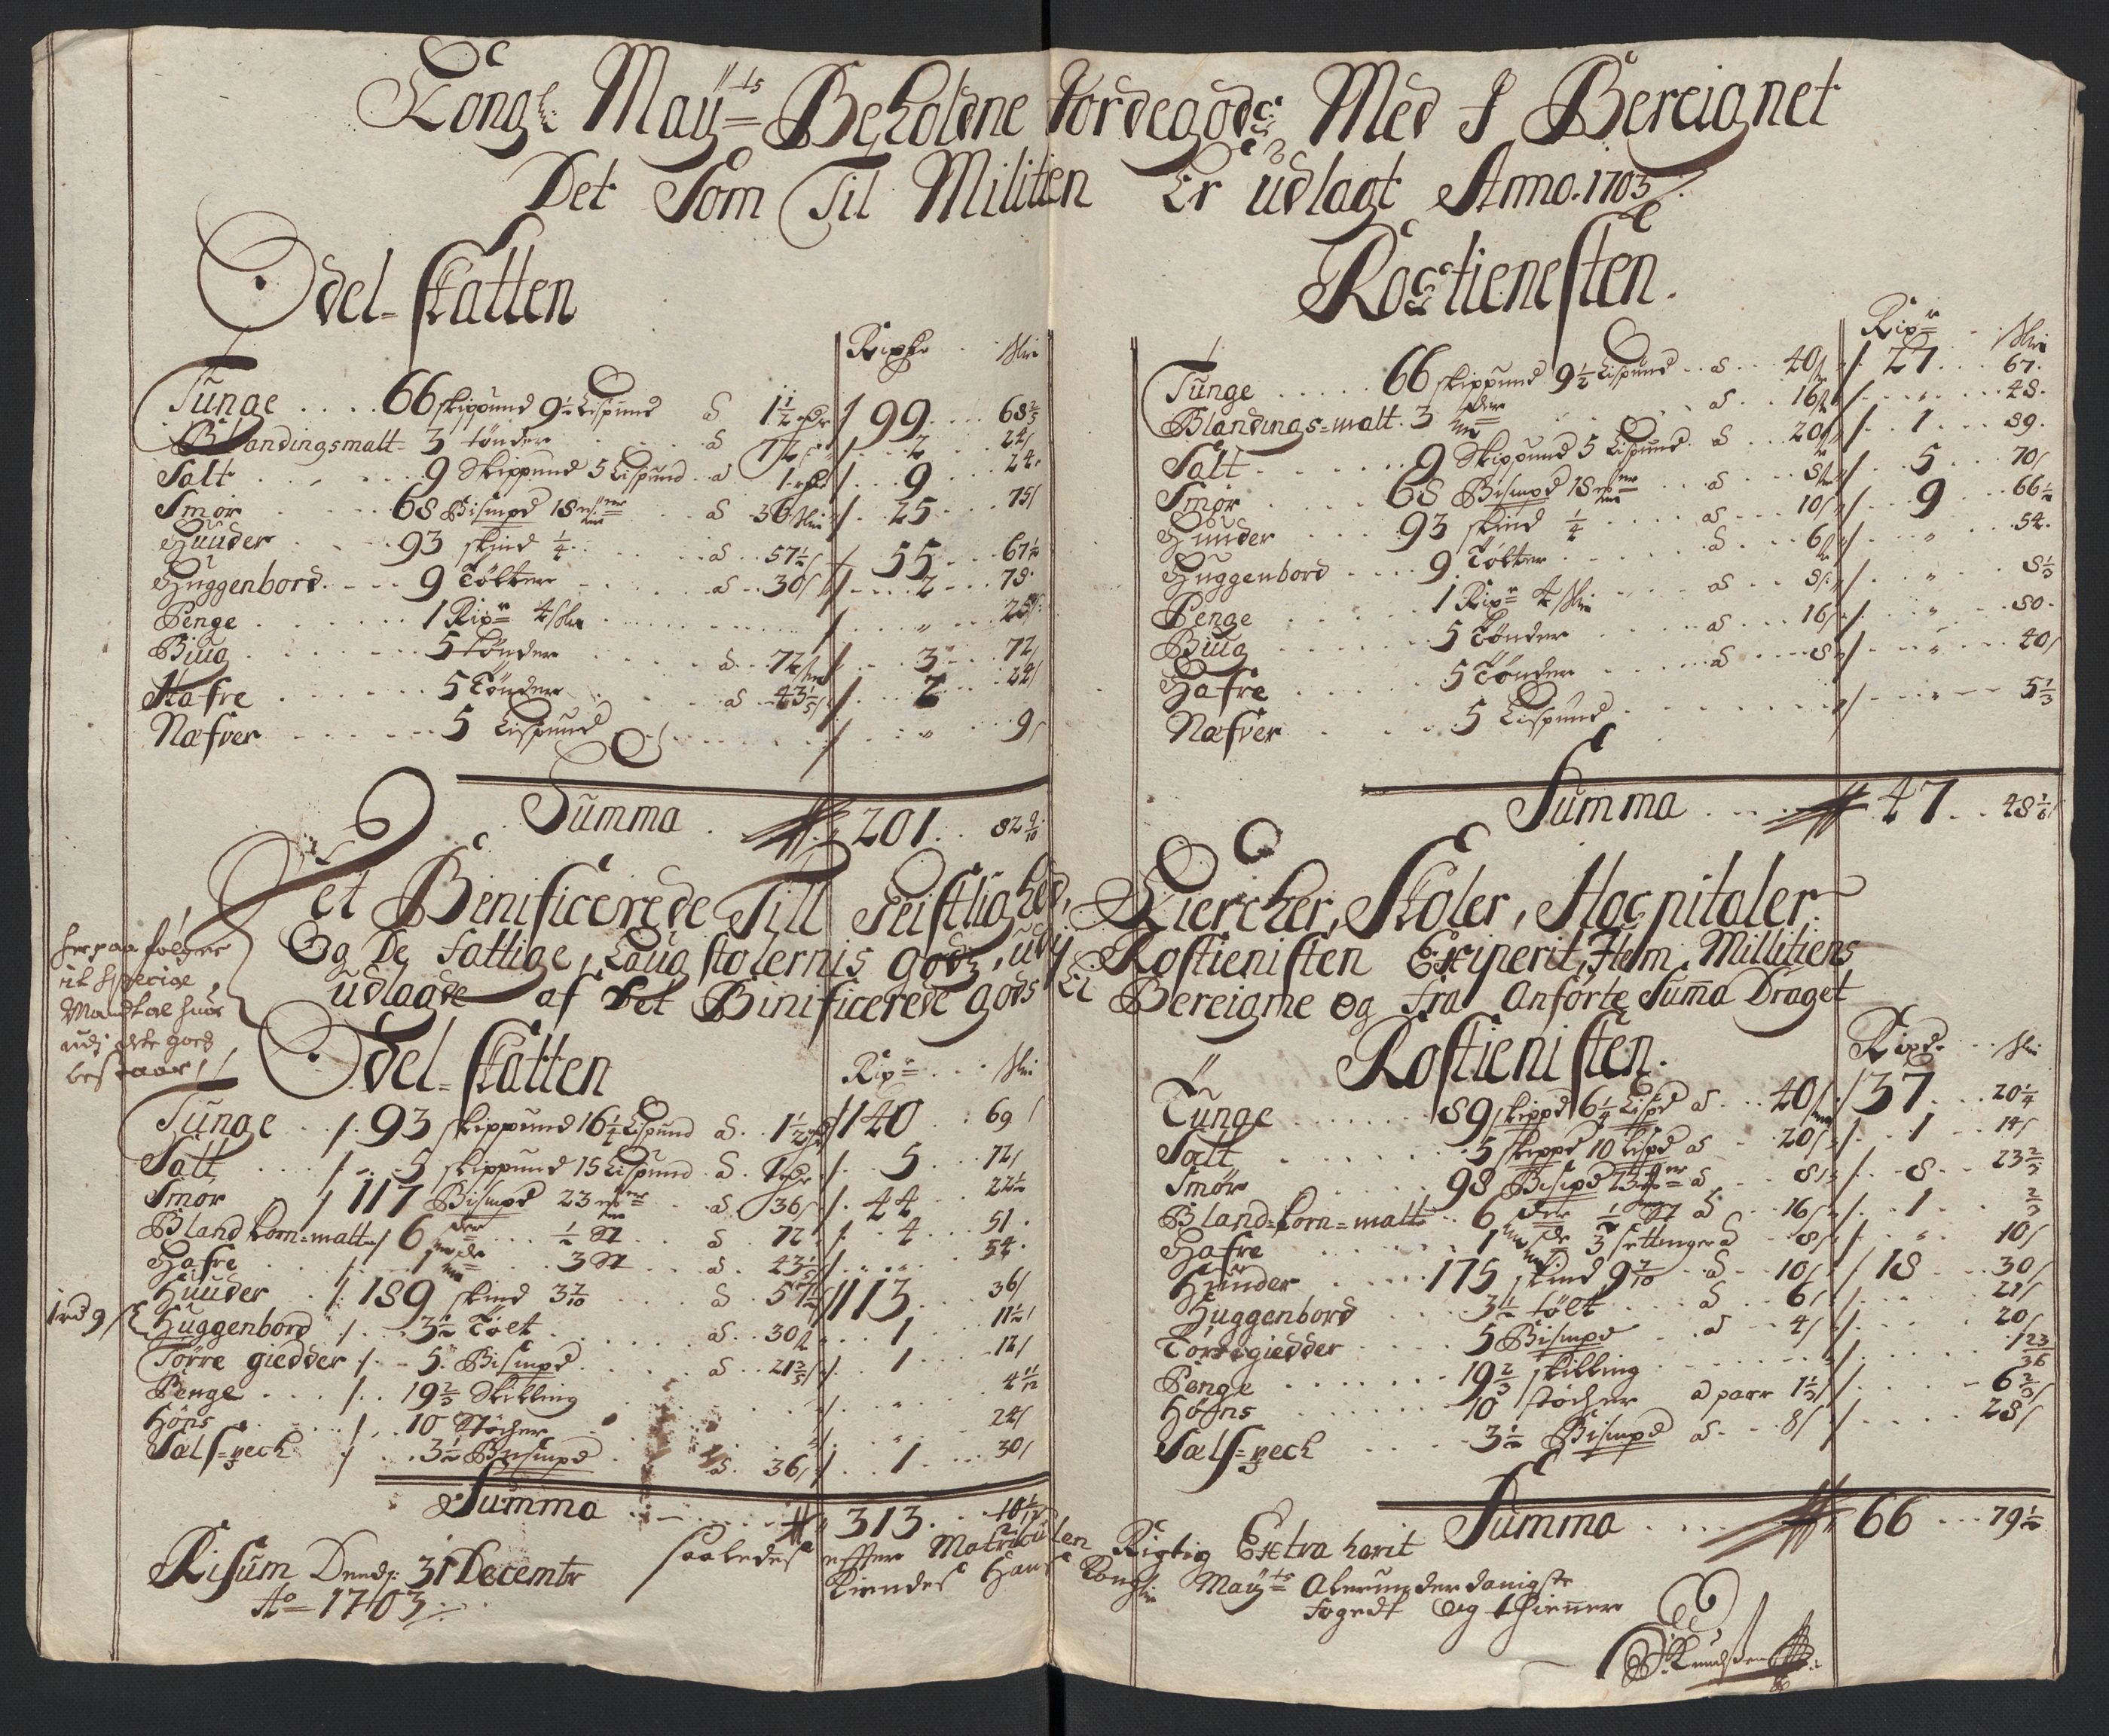 Kongl: May:ts Beholdne Jordegods Med J Bereignet
Det Som Til Militien Er udlagt Anno. 1703
Odel-skatten
Tunge 66 skippund 9½ Lispund a 1½ 99 68⅖
Blandingsmalt 3 tønder a 72 2 24
Salt 9 Skippund 5 Lispund a 1 9 24
Smør 68 Bismpd 18 a 36 25 75
Huuder 93 skind ¼ a 57½ 55 67½
Huggenbord 9 Tolter a 30 2 78
Penge 1 4
Biug 5 tønder a 72 3 72
Hafre 5 Tønder a 43⅕ 2 24
Næfver 5 Lispund 9
Summa 201 82 9/10
Rostienesten.
Tunge 66 skippund 9½ Lispund a 40 27 67
Blandings-malt 3 a 16 48
Salt 9 Skippund 5 Lispund a 20 1 89
Smør 68 Bismpd 18 a 8 5 70
Huuder 93 skind ¼ a 10 9 66½
Huggenbord 9 Tolter a 6 54
Penge 1 4 a 8 8⅓
Biug 5 Tønder a 16 80
Hafre 5 Tønder a 8 40
Næfver 5 Lispund 5⅓
Summa 47 48⅙
Det Benificerede Till Geistlighed, Kiercher, Skoler, Hospitaler
Og De Fattige, Laugstolernis gods, udj Rostienisten Exiperit, Item Millitiens
udlagde af Det Binificerede gods Er Bereigne og fra Anførte Suma Draget
Herpaa følger
it Specige
Mandtal huor
udj dette gods
bestaar
Odel-skatten
Tunge 93 skippund 16¼ Lispund a 1½ 140 69
Salt 5 skippund 15 Lispund a 1 5 72
Smør 117 Bismpd 23 a 36 44 22½
Bland korn-malt 6 ½ a 72 4 51
Hafre 1 3 a 43⅕ 54
Huuder 189 skind 3 7/10 a 57½ 113 36
Huggenbord 3½ Tolt a 30 1 11½
Tørre giedder 5 Bismpd a 21⅗ 1 12
Penge 19⅔ Skilling 4 11/12
Høns 10 Støcher 24
Sælspech 3½ Bismpd a 36 1 30
Summa 313 10
Rostienisten.
Tunge 89 skippd 6¼ Lispd a 40 37 20¼
Salt 5 skippd 10 Lispd a 20 1 14
Smør 98 Bismpd a 8 8 23⅔
Bland-korn-malt 6 ½ a 16 1 ⅔
Hafre 1 3 settinger a 8 10
Huuder 175 skind 9 7/10 a 10 18 30
Huggenbord 3½ tolt a 6 21
Tørregiedder 5 Bismpd a 4 20
Penge 19⅔ skilling 23/36
Høns 10 støcher a parr 1⅓ 6⅔
Sælspech 3½ Bismpd a 8 28
Summa 66 79½
Risum Dend: 31 Decembr
Ao 1703
saaledes effter Matriculen Rigtig Extraherit
Kiendes Hans Kongl: May:ts Alerunderdanigste
fogedt og thienner